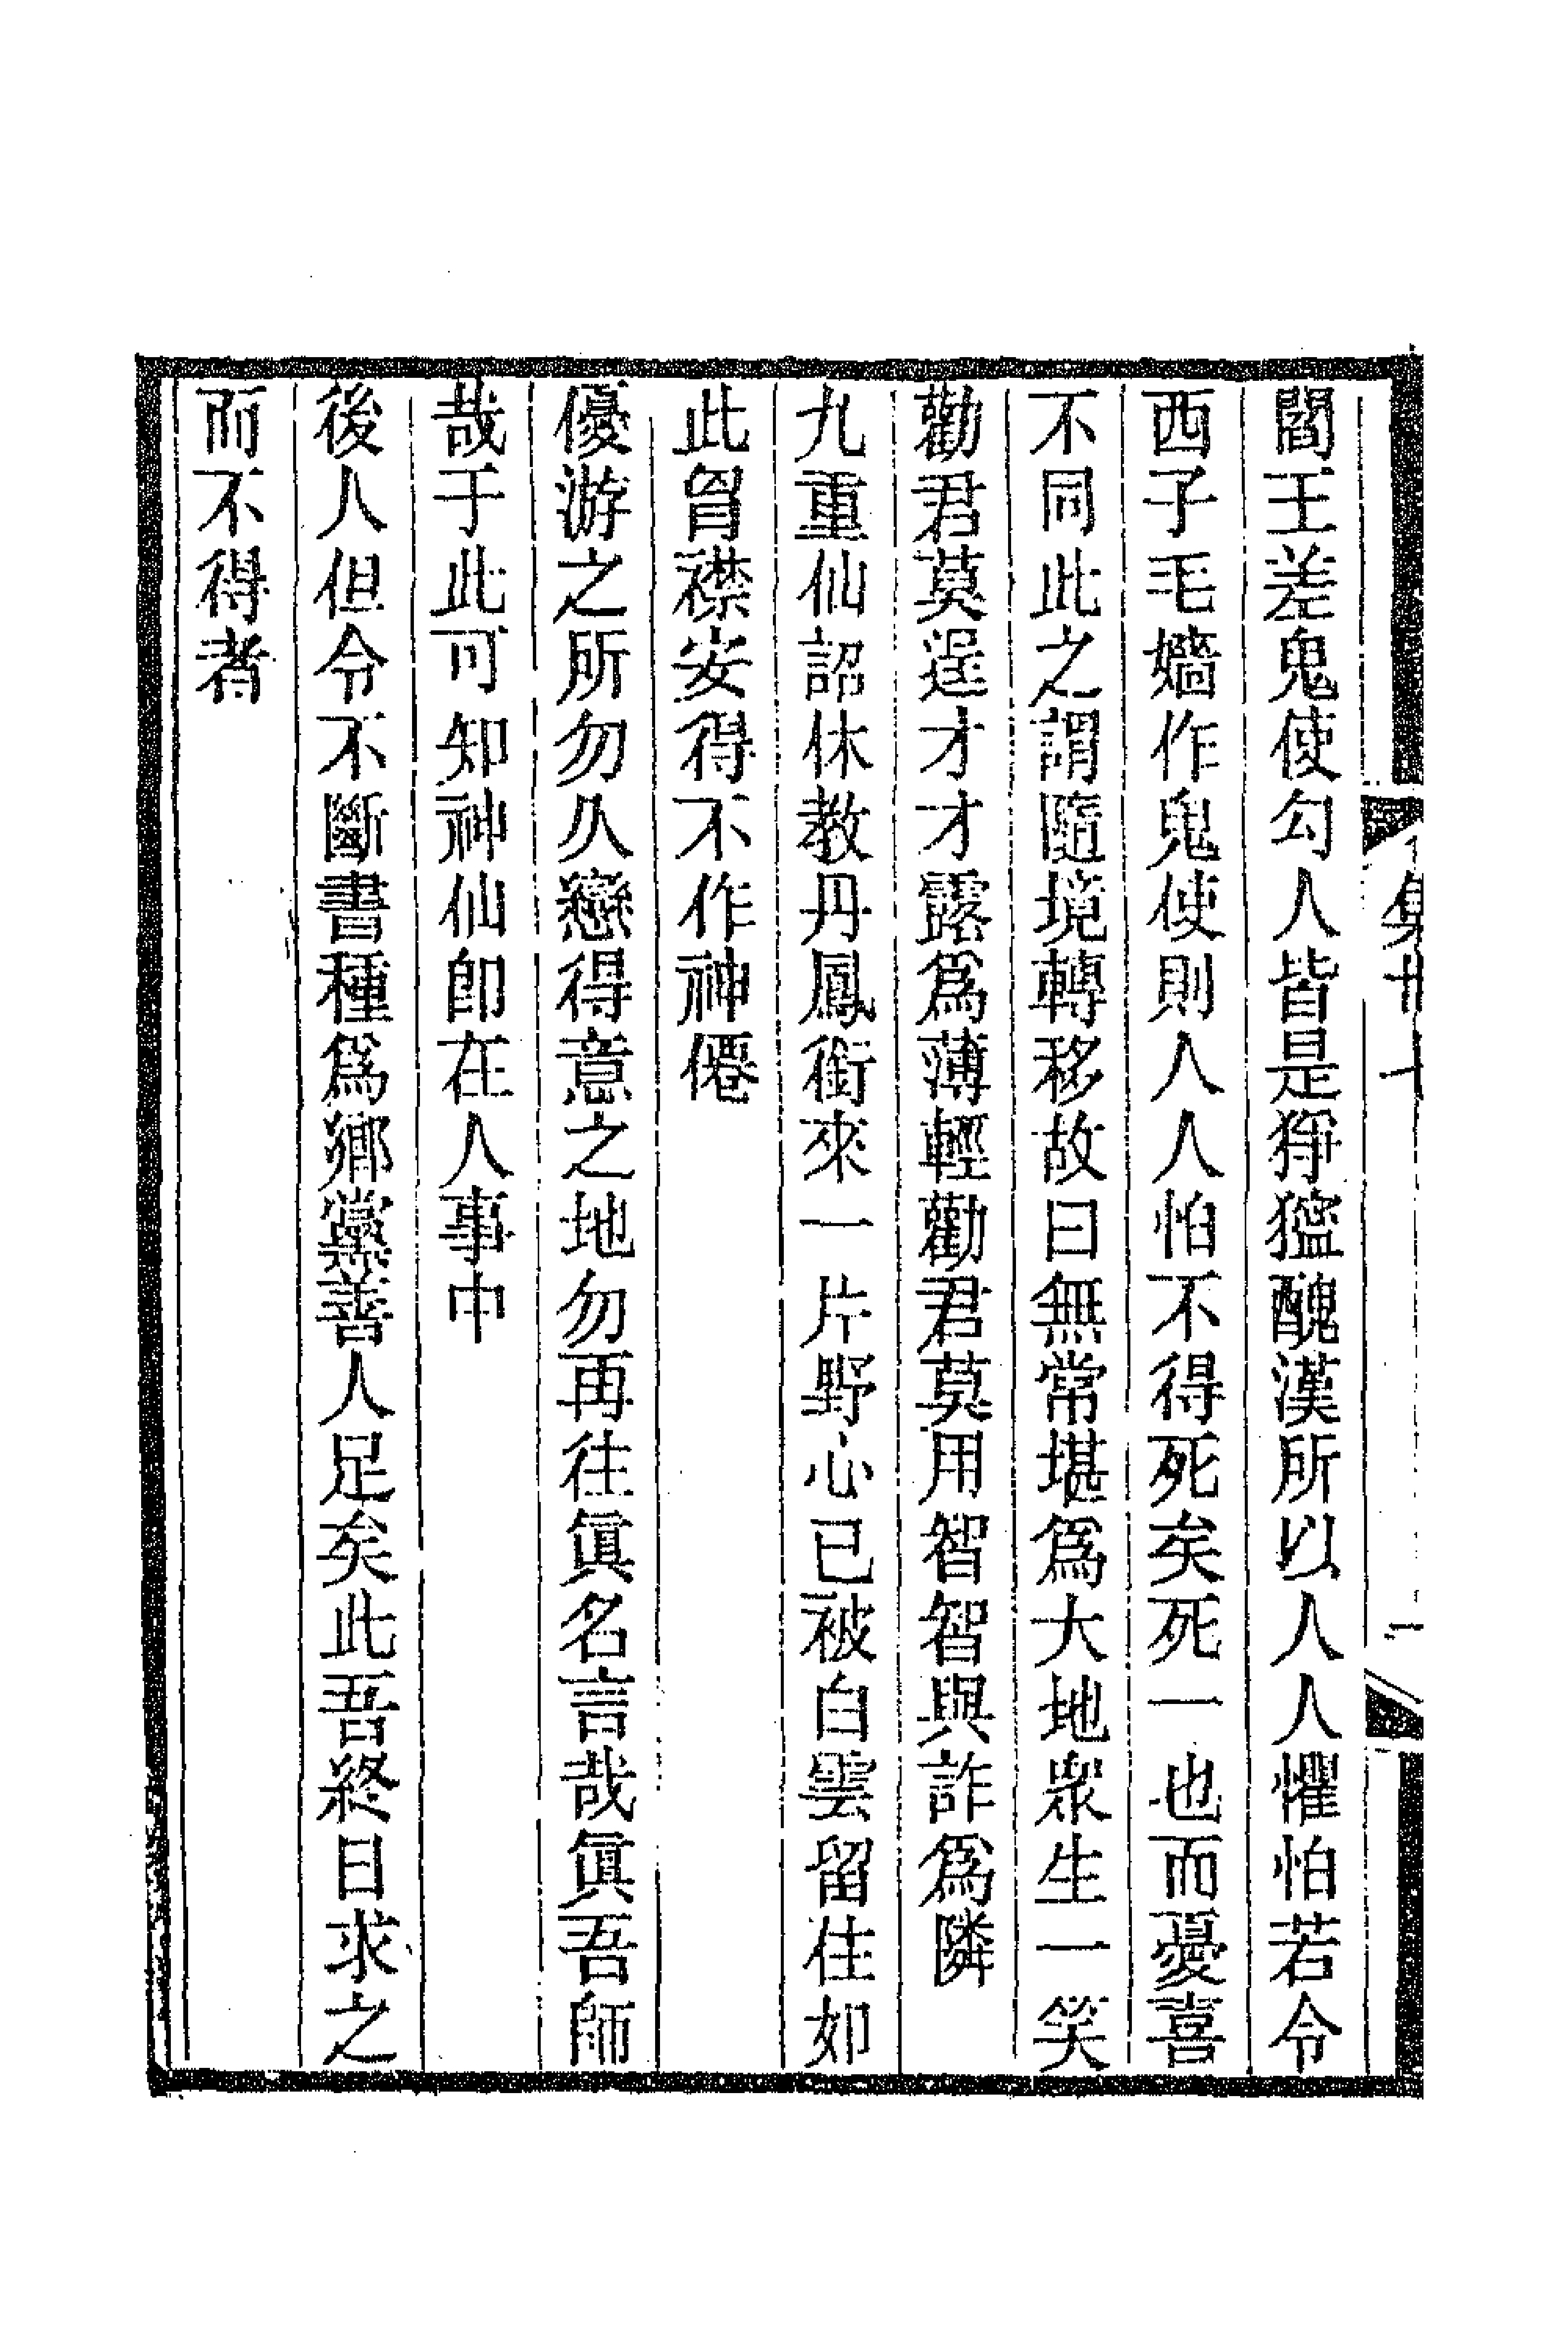 閻王差鬼使勾人皆是猙獰醜漢所以人人懼怕若令
西子毛嬙作鬼使則人人怕不得死矣死一也而憂喜
不同此之謂隨境轉移故曰無常堪爲大地衆生一笑
勸君莫逞才才露爲薄輕勸君莫用智智與詐爲隣
九重仙詔休教丹鳳銜來一片野心已被白雲留住如
此胷襟安得不作神僊
優游之所勿久戀得意之地勿再往眞名言哉眞吾師
哉于此可知神仙卽在人事中
後人但令不斷書種爲鄉黨善人足矣此吾終日求之
而不得者